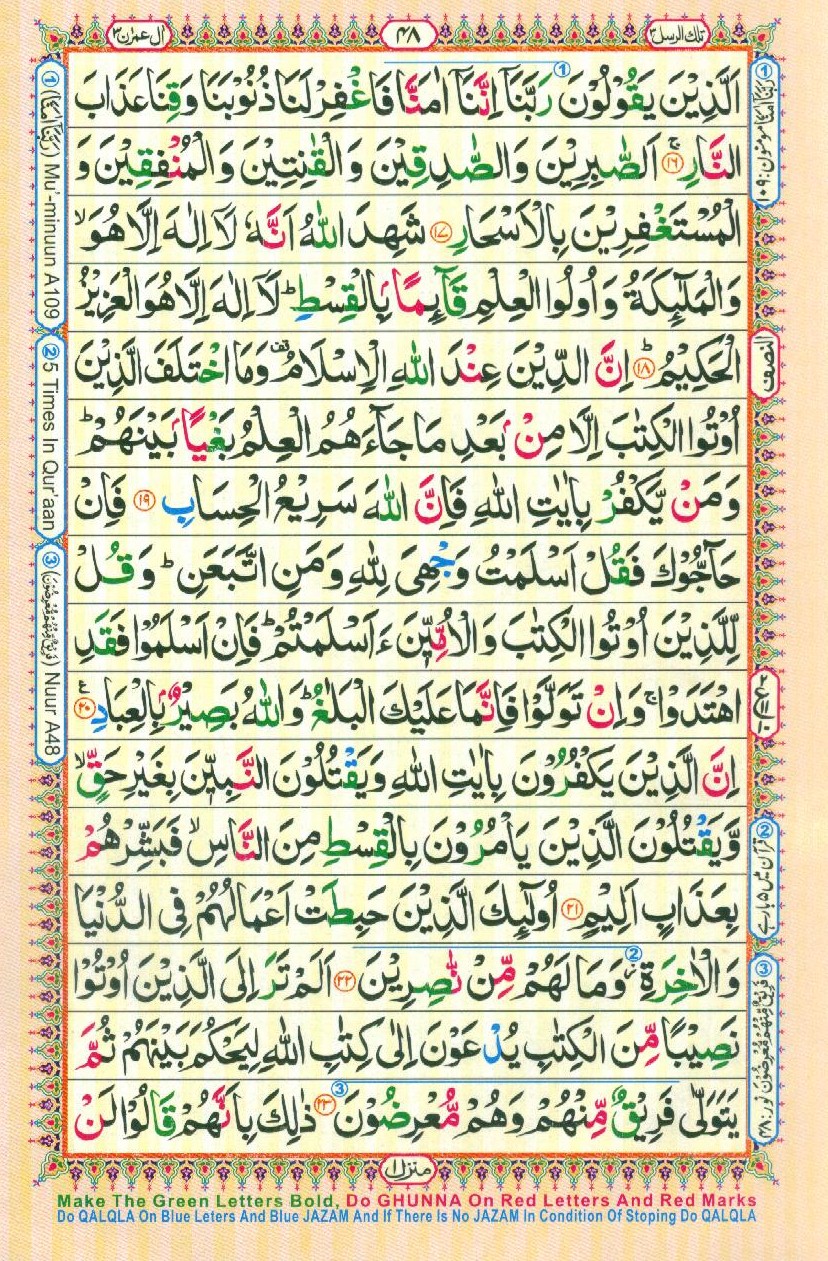 تلك الرسل ٣
٤٨
آل عمرٰن ٣
اَلَّذِيْنَ يَقُوْلُوْنَ رَبَّنَاۤ اِنَّنَاۤ اٰمَنَّا فَاغْفِرْ لَنَا ذُنُوْبَنَا وَقِنَا عَذَابَ
النَّارِ ۚ ۝۱۶ اَلصّٰبِرِيْنَ وَالصّٰدِقِيْنَ وَالْقٰنِتِيْنَ وَالْمُنْفِقِيْنَ وَ
الْمُسْتَغْفِرِيْنَ بِالْاَسْحَارِ ۝۱۷ شَهِدَ اللّٰهُ اَنَّهٗ لَاۤ اِلٰهَ اِلَّا هُوَ ۙ
وَالْمَلٰٓئِكَةُ وَاُولُوا الْعِلْمِ قَآئِمًاۢ بِالْقِسْطِ ؕ لَاۤ اِلٰهَ اِلَّا هُوَ الْعَزِيْزُ
الْحَكِيْمُ ؕ ۝۱۸ اِنَّ الدِّيْنَ عِنْدَ اللّٰهِ الْاِسْلَامُ قف وَمَا اخْتَلَفَ الَّذِيْنَ
اُوْتُوا الْكِتٰبَ اِلَّا مِنْۢ بَعْدِ مَا جَآءَهُمُ الْعِلْمُ بَغْيًاۢ بَيْنَهُمْ ؕ
وَمَنْ يَّكْفُرْ بِاٰيٰتِ اللّٰهِ فَاِنَّ اللّٰهَ سَرِيْعُ الْحِسَابِ ۝۱۹ فَاِنْ
حَآجُّوْكَ فَقُلْ اَسْلَمْتُ وَجْهِيَ لِلّٰهِ وَمَنِ اتَّبَعَنِ ؕ وَقُلْ
لِّلَّذِيْنَ اُوْتُوا الْكِتٰبَ وَالْاُمِّيّٖنَ ءَاَسْلَمْتُمْ ؕ فَاِنْ اَسْلَمُوْا فَقَدِ
اهْتَدَوْا ۚ وَاِنْ تَوَلَّوْا فَاِنَّمَا عَلَيْكَ الْبَلٰغُ ؕ وَاللّٰهُ بَصِيْرٌۢ بِالْعِبَادِ ۝۲۰ ع
اِنَّ الَّذِيْنَ يَكْفُرُوْنَ بِاٰيٰتِ اللّٰهِ وَيَقْتُلُوْنَ النَّبِيّٖنَ بِغَيْرِ حَقٍّ ۙ
وَّيَقْتُلُوْنَ الَّذِيْنَ يَاْمُرُوْنَ بِالْقِسْطِ مِنَ النَّاسِ ۙ فَبَشِّرْهُمْ
بِعَذَابٍ اَلِيْمٍ ۝۲۱ اُولٰٓئِكَ الَّذِيْنَ حَبِطَتْ اَعْمَالُهُمْ فِى الدُّنْيَا
وَالْاٰخِرَةِ ؗ وَمَا لَهُمْ مِّنْ نّٰصِرِيْنَ ۝۲۲ اَلَمْ تَرَ اِلَى الَّذِيْنَ اُوْتُوْا
نَصِيْبًا مِّنَ الْكِتٰبِ يُدْعَوْنَ اِلٰى كِتٰبِ اللّٰهِ لِيَحْكُمَ بَيْنَهُمْ ثُمَّ
يَتَوَلّٰى فَرِيْقٌ مِّنْهُمْ وَهُمْ مُّعْرِضُوْنَ ۝۲۳ ذٰلِكَ بِاَنَّهُمْ قَالُوْا لَنْ
① (رَبَّنَاۤ اٰمَنَّا) Mu'-minuun A109
② 5 Times In Qur'aan
③ (فَرِيْقٌ مِّنْهُمْ مُّعْرِضُوْنَ) Nuur A48
① رَبَّنَاۤ اٰمَنَّا مومنون: ۱۰۹
النصف
② قرآن میں ۵ بار ہے
③ فَرِيْقٌ مِّنْهُمْ مُّعْرِضُوْنَ نور: ۴۸
منزل ۱
Make The Green Letters Bold, Do GHUNNA On Red Letters And Red Marks
Do QALQLA On Blue Leters And Blue JAZAM And If There Is No JAZAM In Condition Of Stoping Do QALQLA